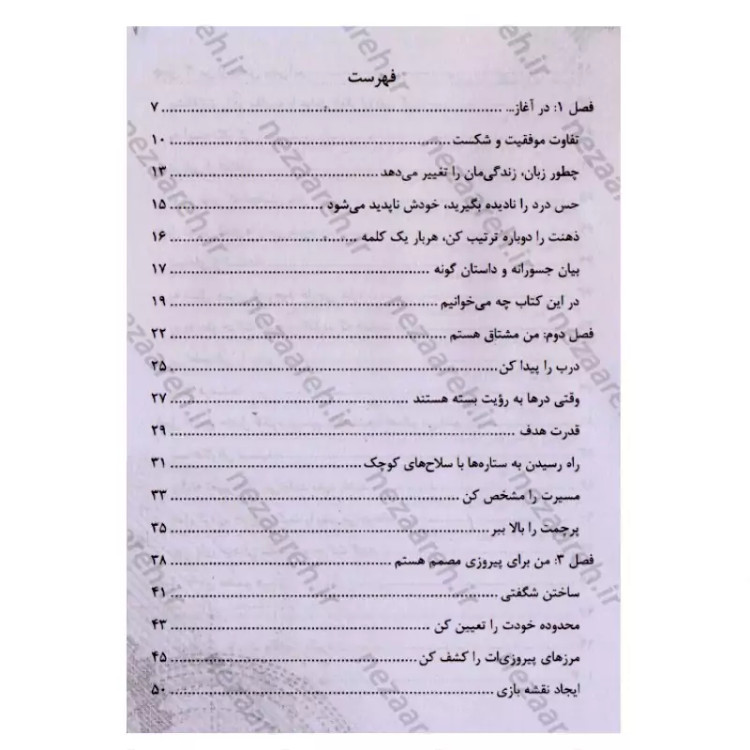 فهرست
فصل ۱: در آغاز... ۷
تفاوت موفقیت و شکست ۱۰
چطور زبان، زندگی‌مان را تغییر می‌دهد ۱۳
حس درد را نادیده بگیرید، خودش ناپدید می‌شود ۱۵
ذهنت را دوباره ترتیب کن، هربار یک کلمه ۱۶
بیان جسورانه و داستان گونه ۱۷
در این کتاب چه می‌خوانیم ۱۹
فصل دوم: من مشتاق هستم ۲۲
درب را پیدا کن ۲۵
وقتی درها به رؤیت بسته هستند ۲۷
قدرت هدف ۲۹
راه رسیدن به ستاره‌ها با سلاح‌های کوچک ۳۱
مسیرت را مشخص کن ۳۳
پرچمت را بالا ببر ۳۵
فصل ۳: من برای پیروزی مصمم هستم ۳۸
ساختن شگفتی ۴۱
محدوده خودت را تعیین کن ۴۳
مرزهای پیروزی‌ات را کشف کن ۴۵
ایجاد نقشه بازی ۵۰
nezaareh.ir